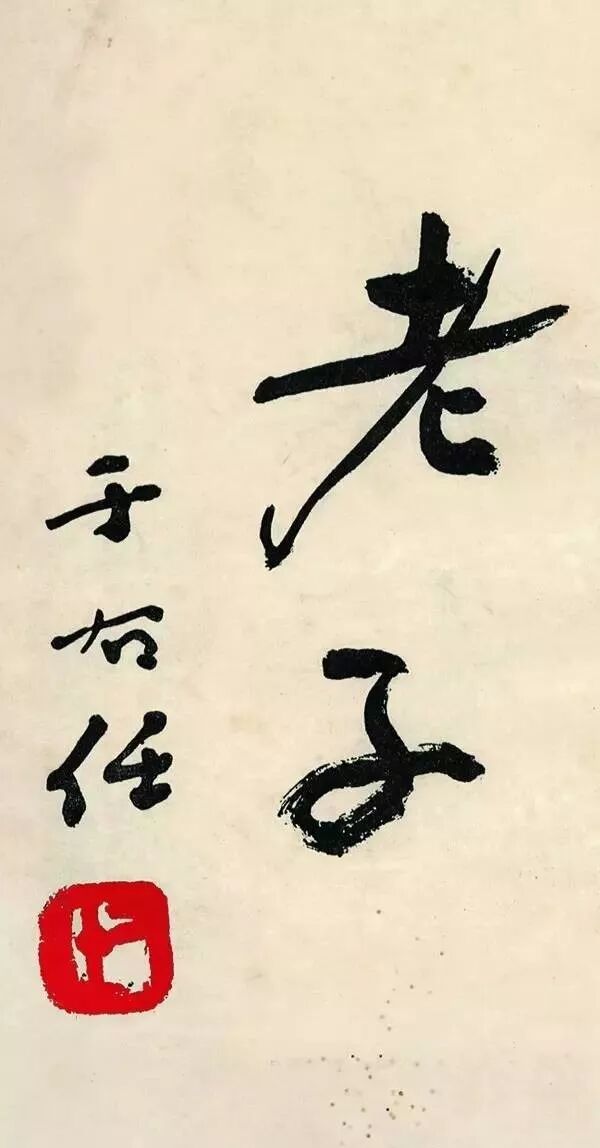 老子
于右任